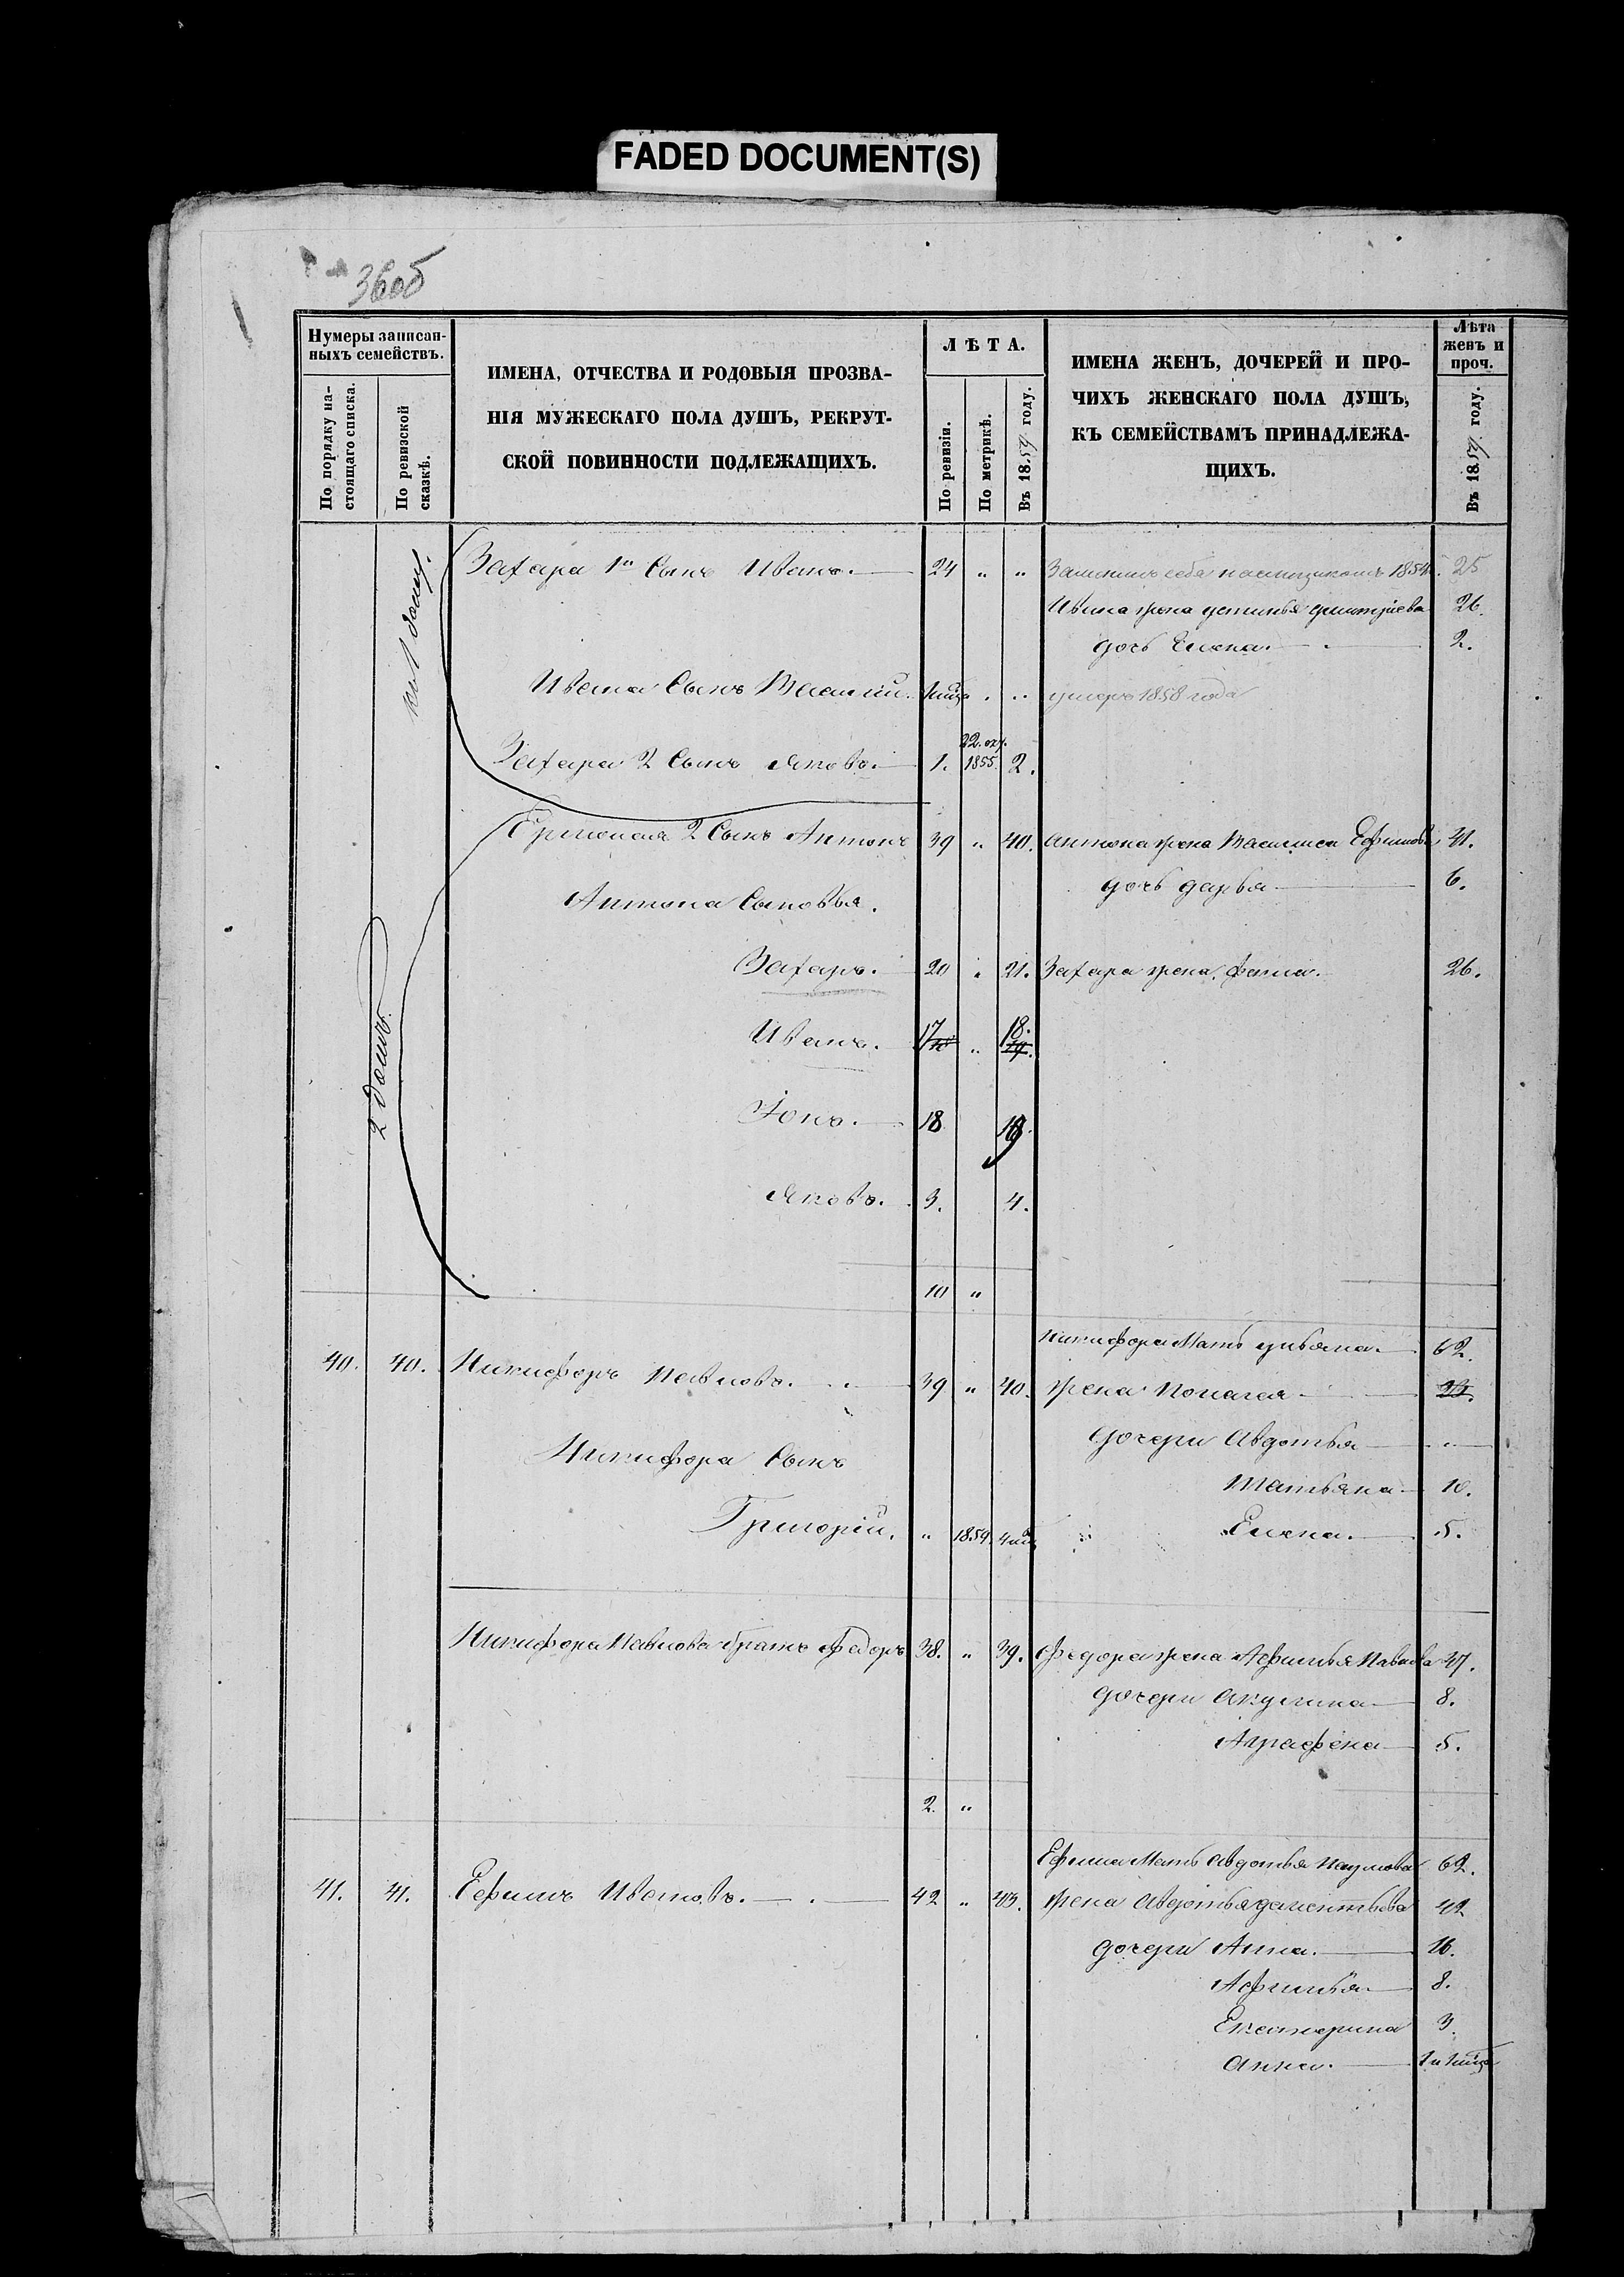 FADED DOCUMENT(S)
36об
Нумеры записан-
ныхъ семействъ.
По порядку на-
стоящаго списка.
По ревизской
сказкѣ.
ИМЕНА, ОТЧЕСТВА И РОДОВЫЯ ПРОЗВА-
НІЯ МУЖЕСКАГО ПОЛА ДУШЪ, РЕКРУТ-
СКОЙ ПОВИННОСТИ ПОДЛЕЖАЩИХЪ.
ЛѢТА.
По ревизіи.
По метрикѣ.
Въ 1859 году.
ИМЕНА ЖЕНЪ, ДОЧЕРЕЙ И ПРО-
ЧИХЪ ЖЕНСКАГО ПОЛА ДУШЪ,
КЪ СЕМЕЙСТВАМЪ ПРИНАДЛЕЖА-
ЩИХЪ.
Лѣта
женъ и
проч.
Въ 1859 году.
1 дому.
Захара 1й Сынъ Иванъ. 24 " " 1854. 25
Ивана жена устинья дмитріева 26.
дочь Елена. 2.
Ивана Сынъ Василій. умеръ 1858 года
Захара 2 Сынъ Яковъ. 1. 22. окт. 1855. 2.
2 домъ.
Ермолая 2 Сынъ Антонъ 39 " 40. Антона жена Василиса Ефимова 41.
дочь дарья 6.
Антона Сыновья.
Захаръ. 20 " 21. Захара жена. 26.
Иванъ. 17 " 18.
Іонъ. 18 19
Яковъ. 3. 4.
10 "
Никифора Мать ульяна. 62.
40. 40. Никифоръ Павловъ. 39 " 40. жена Полагея
дочери Авдотья "
Никифора Сынъ
Татьяна 10.
Григорій. " 1859. Елена. 5.
Никифора Павлова братъ Федоръ 38. " 39. Федора жена Афимья Павлова 47.
дочери Акулина 8.
Аграфена 5.
2. "
Ефима Мать Авдотья Наумова 62.
41. 41. Ефимъ Ивановъ. 42 " 43. жена Авдотья дементьева 42
дочери Анна. 16.
Афимья 8.
Екатерина 3.
Анна.